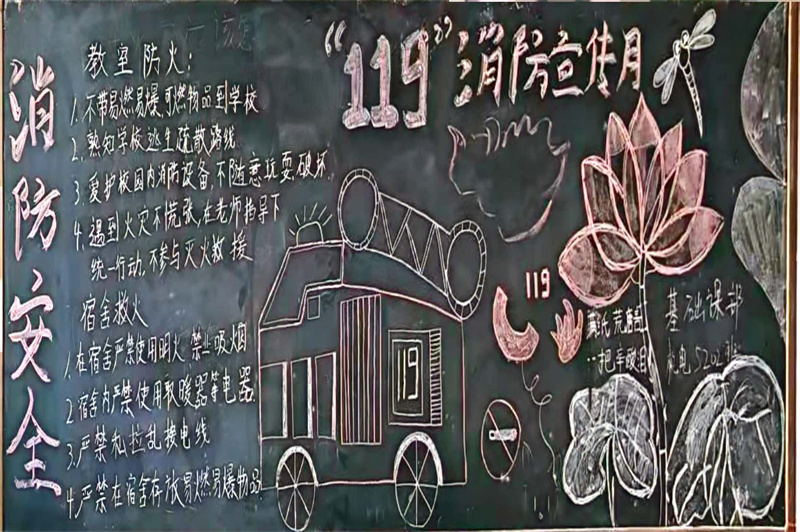 消防安全
“119”消防宣传月
教室防火：
1.不带易燃易爆可燃物品到学校
2.熟知学校逃生疏散路线
3.爱护校园内消防设备,不随意玩耍破坏.
4.遇到火灾不慌张,在老师指导下
统一行动,不参与灭火救援
宿舍救火
1.在宿舍严禁使用明火 禁止吸烟
2.宿舍内严禁使用取暖器等电器.
3.严禁私拉乱接电线
4.严禁在宿舍存放易燃易爆物品
119
119
基础课部
机电5202